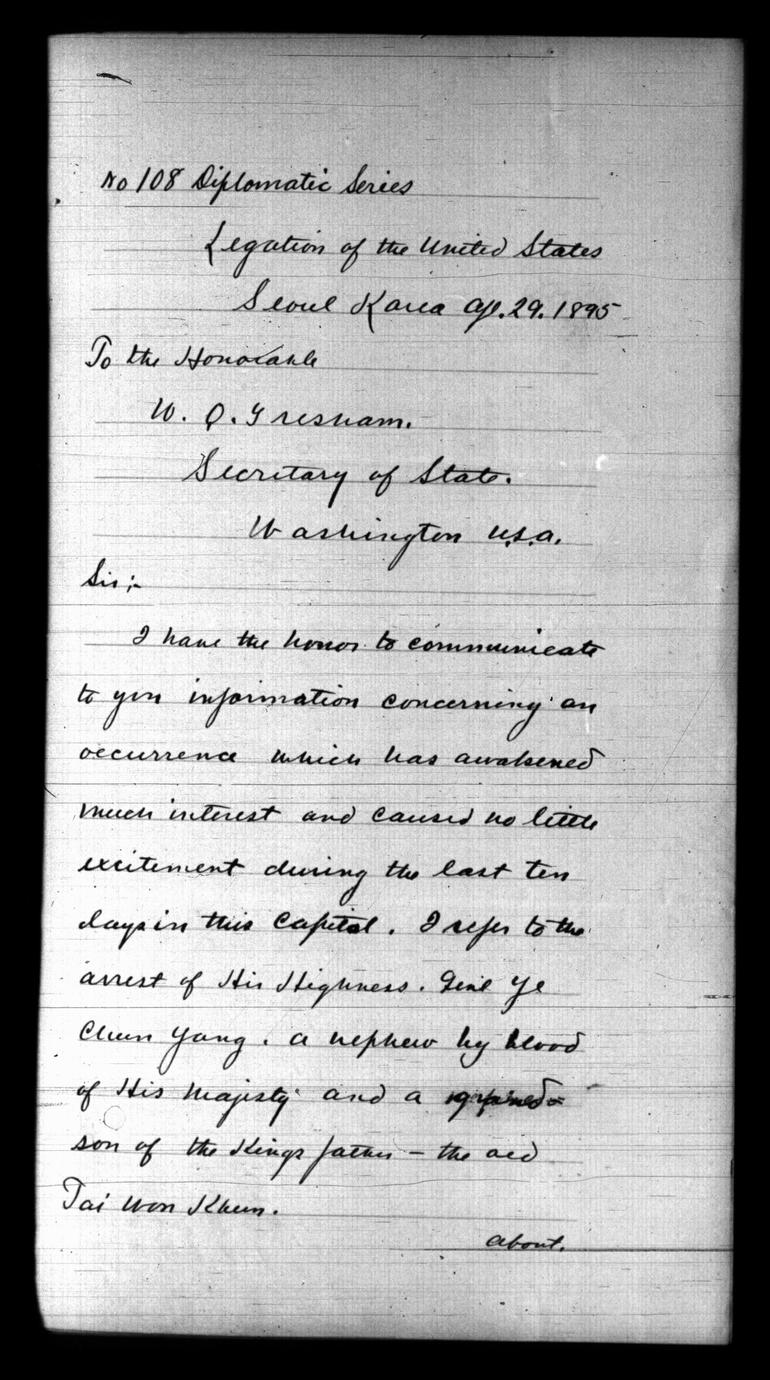 No 108 Diplomatic Series
Legation of the United States
Seoul Korea Ap. 29. 1895
To the Honorable
W. Q. Gresham.
Secretary of State.
Washington U.S.A.
Sir;-
I have the honor to communicate
to you information concerning an
occurrence which has awakened
much interest and caused no little
excitement during the last ten
days in this Capital. I refer to the
arrest of His Highness. Genl Ye
Chun Yang. a nephew by blood
of His Majesty and a
son of the Kings father - the old
Tai Won Khun.
about.